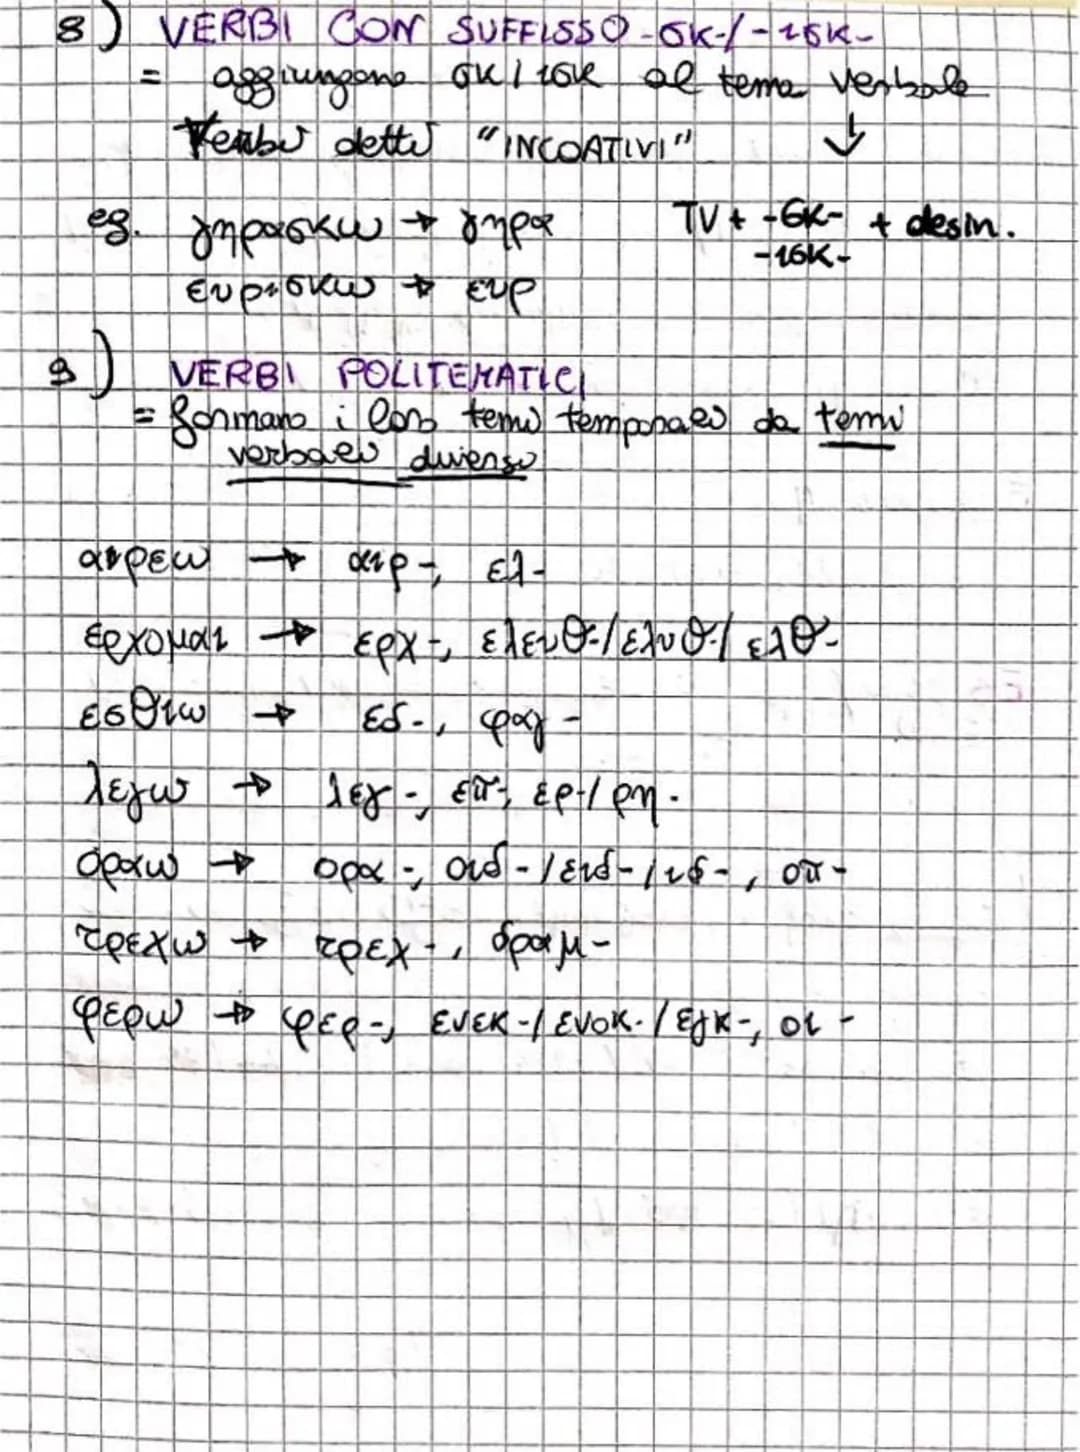 8) VERBI CON SUFFISSO -σκ-/-ισκ-
= aggiungono σκ/ισκ al tema verbale
Verbi detti "INCOATIVI" ↓
eg. γηρασκω → γηρα TV + -σκ- + desin.
-ισκ-
ευρισκω → ευρ
9) VERBI POLITEMATICI
= formano i loro temi temporali da temi
verbali diversi
αιρεω → αιρ-, ελ-
ερχομαι → ερχ-, ελευθ-/ελυθ-/ελθ-
εσθιω → εδ-, φαγ-
λεγω → λεγ-, επ-, ερ-/ρη-
οραω → ορα-, οιδ-/ειδ-/ιδ-, οπ-
τρεχω → τρεχ-, δραμ-
φερω → φερ-, ενεκ-/ενοκ-/εγκ-, οι-